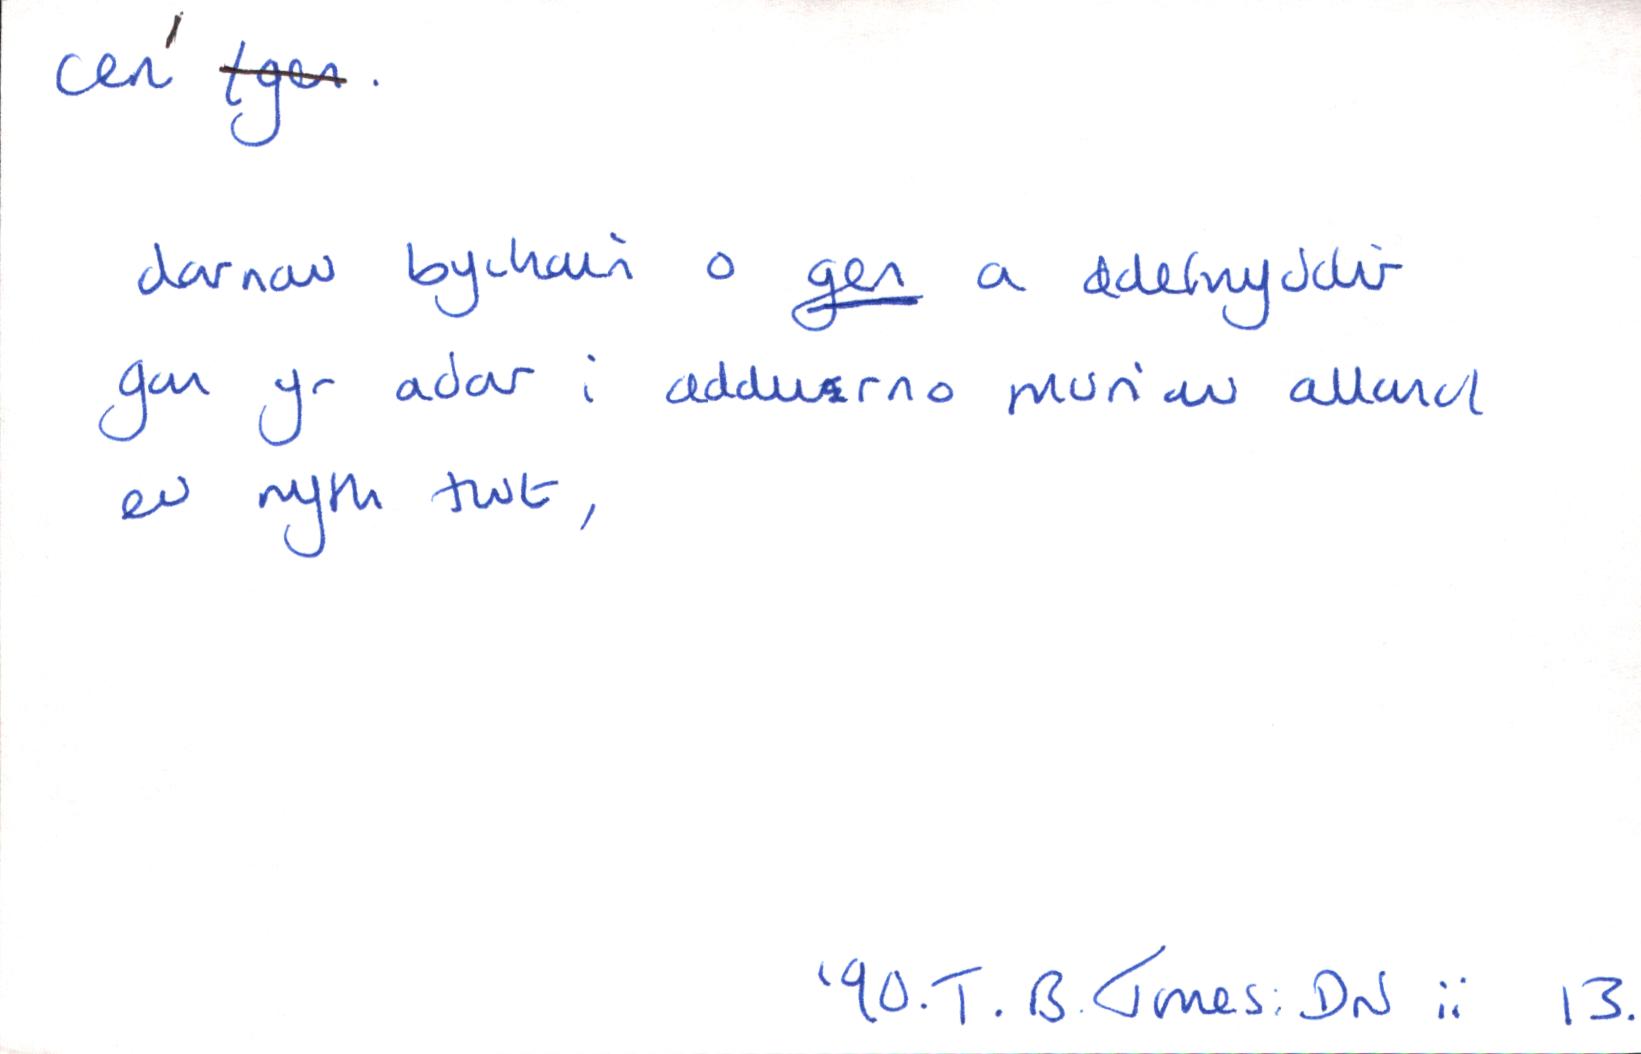 cen' tgen.
darnau bychain o gen a ddefnyddir
gan yr adar i addurno muriau allanol
eu nyth twt,
'90. T. B. Jones: DN ii 13.